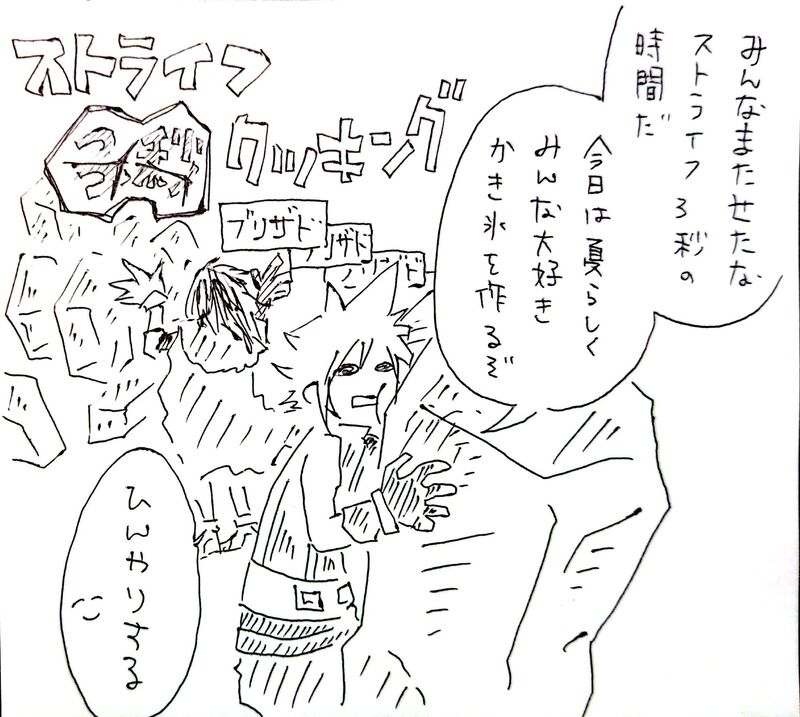 ストライフ
クッキング
みんなまたせたな
ストライフ3秒の
時間だ
今日は夏らしく
みんな大好き
かき氷を作るぞ
ブリザド
ブリザド
ブリザド
ひんやりする